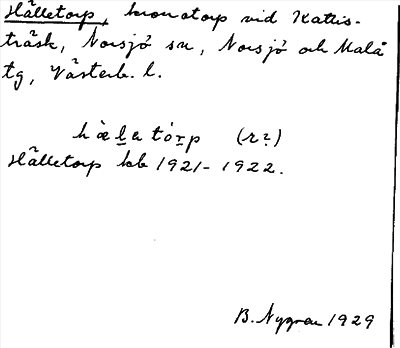 Hälletorp, kronotorp vid Kattis-
träsk, Norsjö sn, Norsjö och Malå
tg, Västerb. l.
hæ̀let́orp (r?)
Hälletorp kb 1921-1922.
B. Nygren 1929